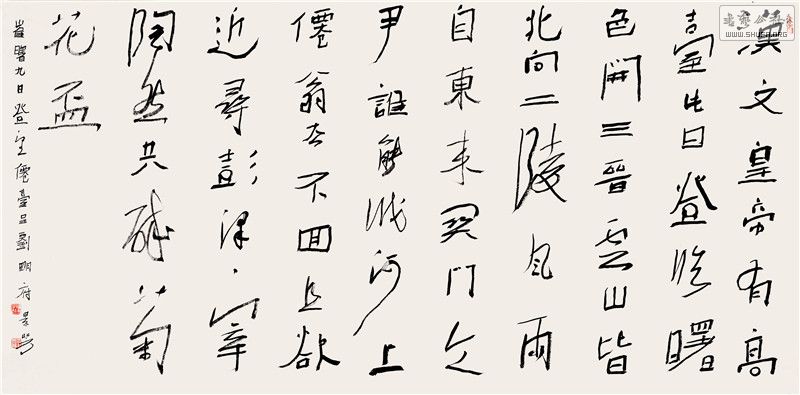 漢文皇帝有高
臺此日登臨曙
色開三晉雲山皆
北向二陵風雨
自東来関門令
尹誰能識河上
僊翁去不回且欲
近尋彭澤宰
陶然共醉菊
花盃
崔曙九日登望僊臺呈劉明府
WWW.SHUFA.ORG